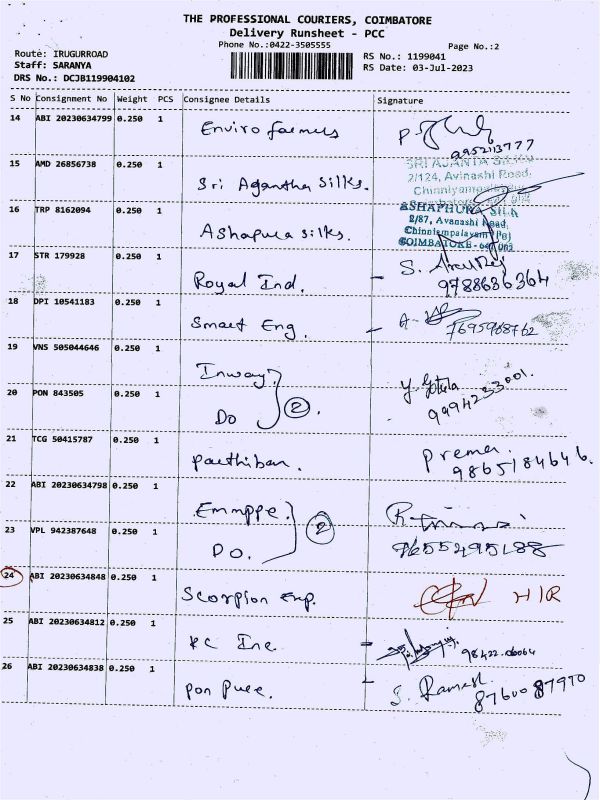 THE PROFESSIONAL COURIERS, COIMBATORE
Delivery Runsheet - PCC
Phone No.:0422-3505555
Page No.:2
Route: IRUGURROAD
RS No.: 1199041
Staff: SARANYA
RS Date: 03-Jul-2023
DRS No.: DCJB119904102
S No Consignment No Weight PCS Consignee Details Signature
14 ABI 20230634799 0.250 1 Enviro farmers
9952113777
15 AMD 26856738 0.250 1 Sri Agantha Silks.
SRI AJANTA
2/124, Avinashi Road,
Chinniyampalayam
16 TRP 8162094 0.250 1 Ashapura silks.
ASHAPURA SILK
2/87, Avanashi Road,
Chinniampalayam (PO)
COIMBATORE - 641 062
17 STR 179928 0.250 1 Royal Ind. - S.
9788636364
18 DPI 10541183 0.250 1 Smart Eng. - A-
7695968762
19 VNS 505044646 0.250 1 Inway
20 PON 843505 0.250 1 Do 2.
9994233001.
21 TCG 50415787 0.250 1 parthiban. prema.
9865184646.
22 ABI 20230634798 0.250 1 Emmppe.
23 VPL 942387648 0.250 1 Do. 2
9655295188
24 ABI 20230634848 0.250 1 Scorpion Emp. HIR
25 ABI 20230634812 0.250 1 KC Inc. -
98422-06064
26 ABI 20230634838 0.250 1 pon pure. - S. Ramesh
8760087970